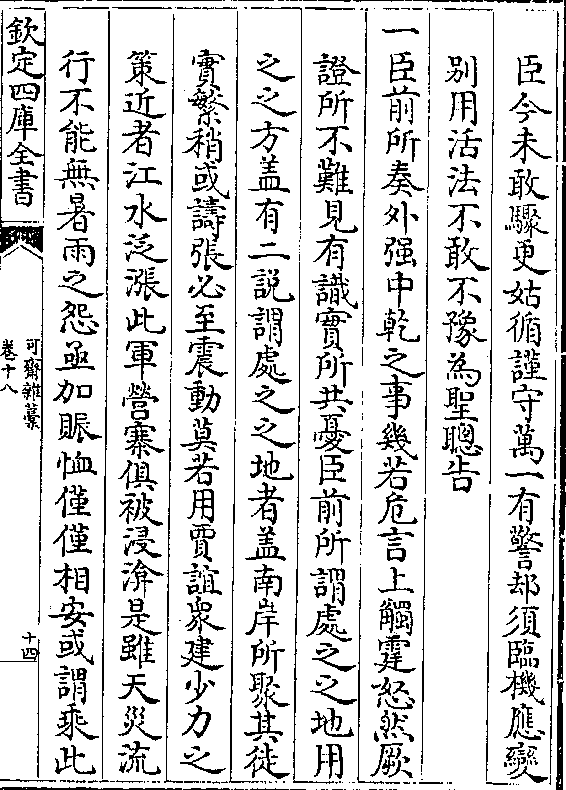 臣今未敢驟更姑循謹守萬一有警却須臨機應變
别用活法不敢不豫為聖聰告
一臣前所奏外强中乾之事幾若危言上觸霆怒然厥
證所不難見有識實所共憂臣前所謂處之之地用
之之方盖有二説謂處之之地者盖南岸所聚其徒
實繁稍或譸張必至震動莫若用賈誼衆建少力之
策近者江水泛漲此軍營寨俱被浸渰是雖天災流
行不能無暑雨之怨亟加賑恤僅僅相安或謂乘此
欽定四庫全書
可齋雜藁
卷十八
十四